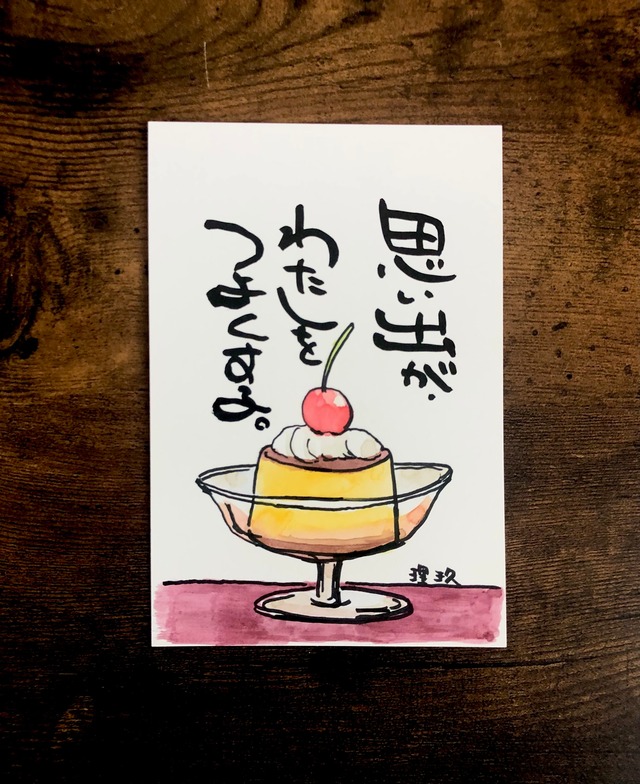 思い出が、
わたしを
つよくする。
理玖